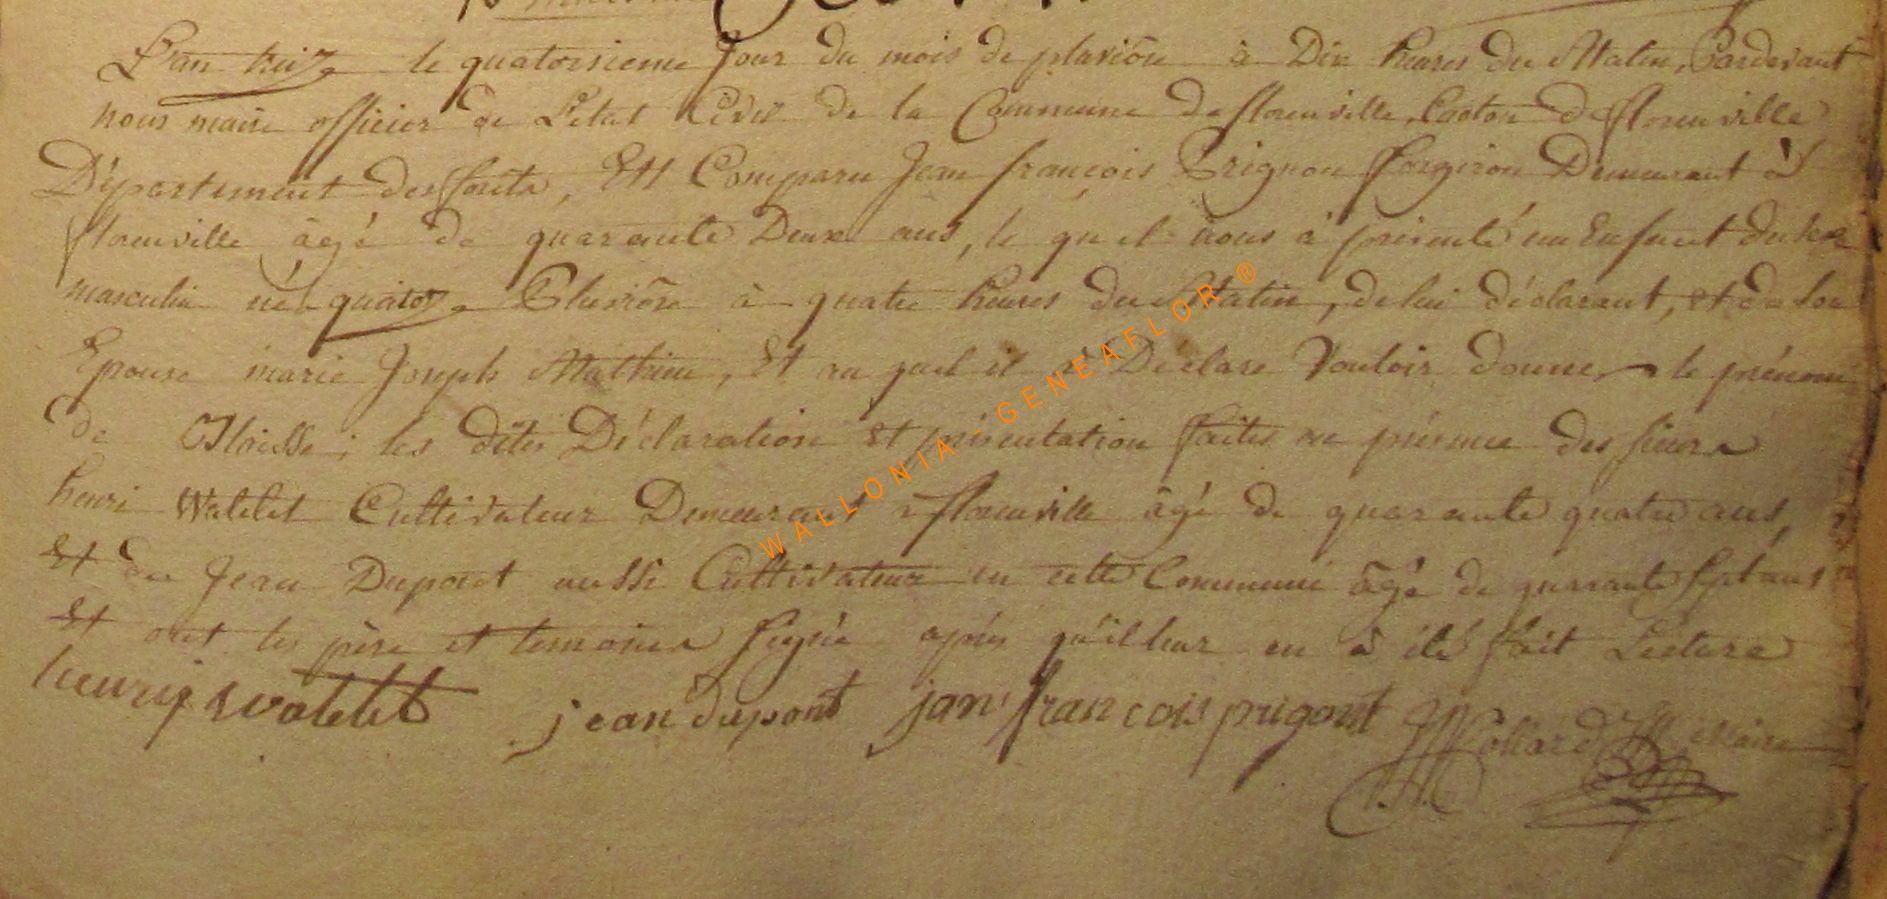 L'an treize le quatorsieme jour du mois de pluviôse à Dix heures du Matin, Pardevant
nous maire officier de L'état Civil de la Commune de florenville, Canton de florenville
Département des forêts, Est Comparu Jean françois Prignon forgeron Demeurant à
florenville âgé de quarante Deux ans, le quel nous à présenté un Enfant du sexe
masculin né quatorze Pluviôse à quatre heures du Matin, de lui déclarant, et de Son
Epouse marie Joseph Mathieu, Et au quel il à Déclaré Vouloir donner le prénom
de les dites Déclaration Et présentation faites en présence des sieurs
henri Watelet Cultivateur Demeurant à florenville âgé de quarante quatre ans,
Et de Jean Dupont aussi Cultivateur en cette Commune âgé de quarante sept ans
Et ont les père et temoins signé après qu'il leur en à été fait Lecture
henrij watelet jean dupont jan francois prigont Collard
WALLONIA-GENEAFLOR®